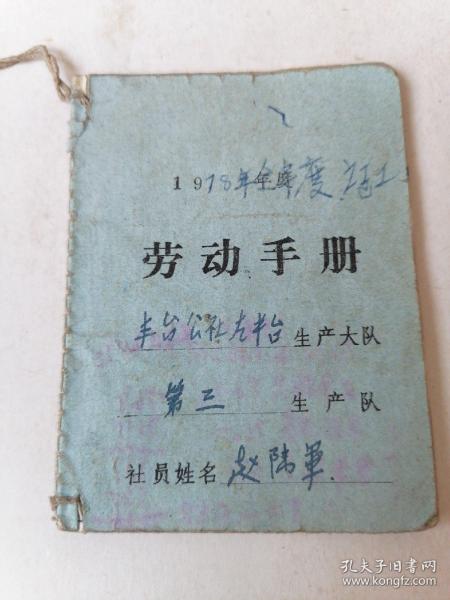 1978年全年度
劳动手册
丰台公社大丰台生产大队
第三生产队
社员姓名赵陆軍
孔夫子旧书网
www.kongfz.com